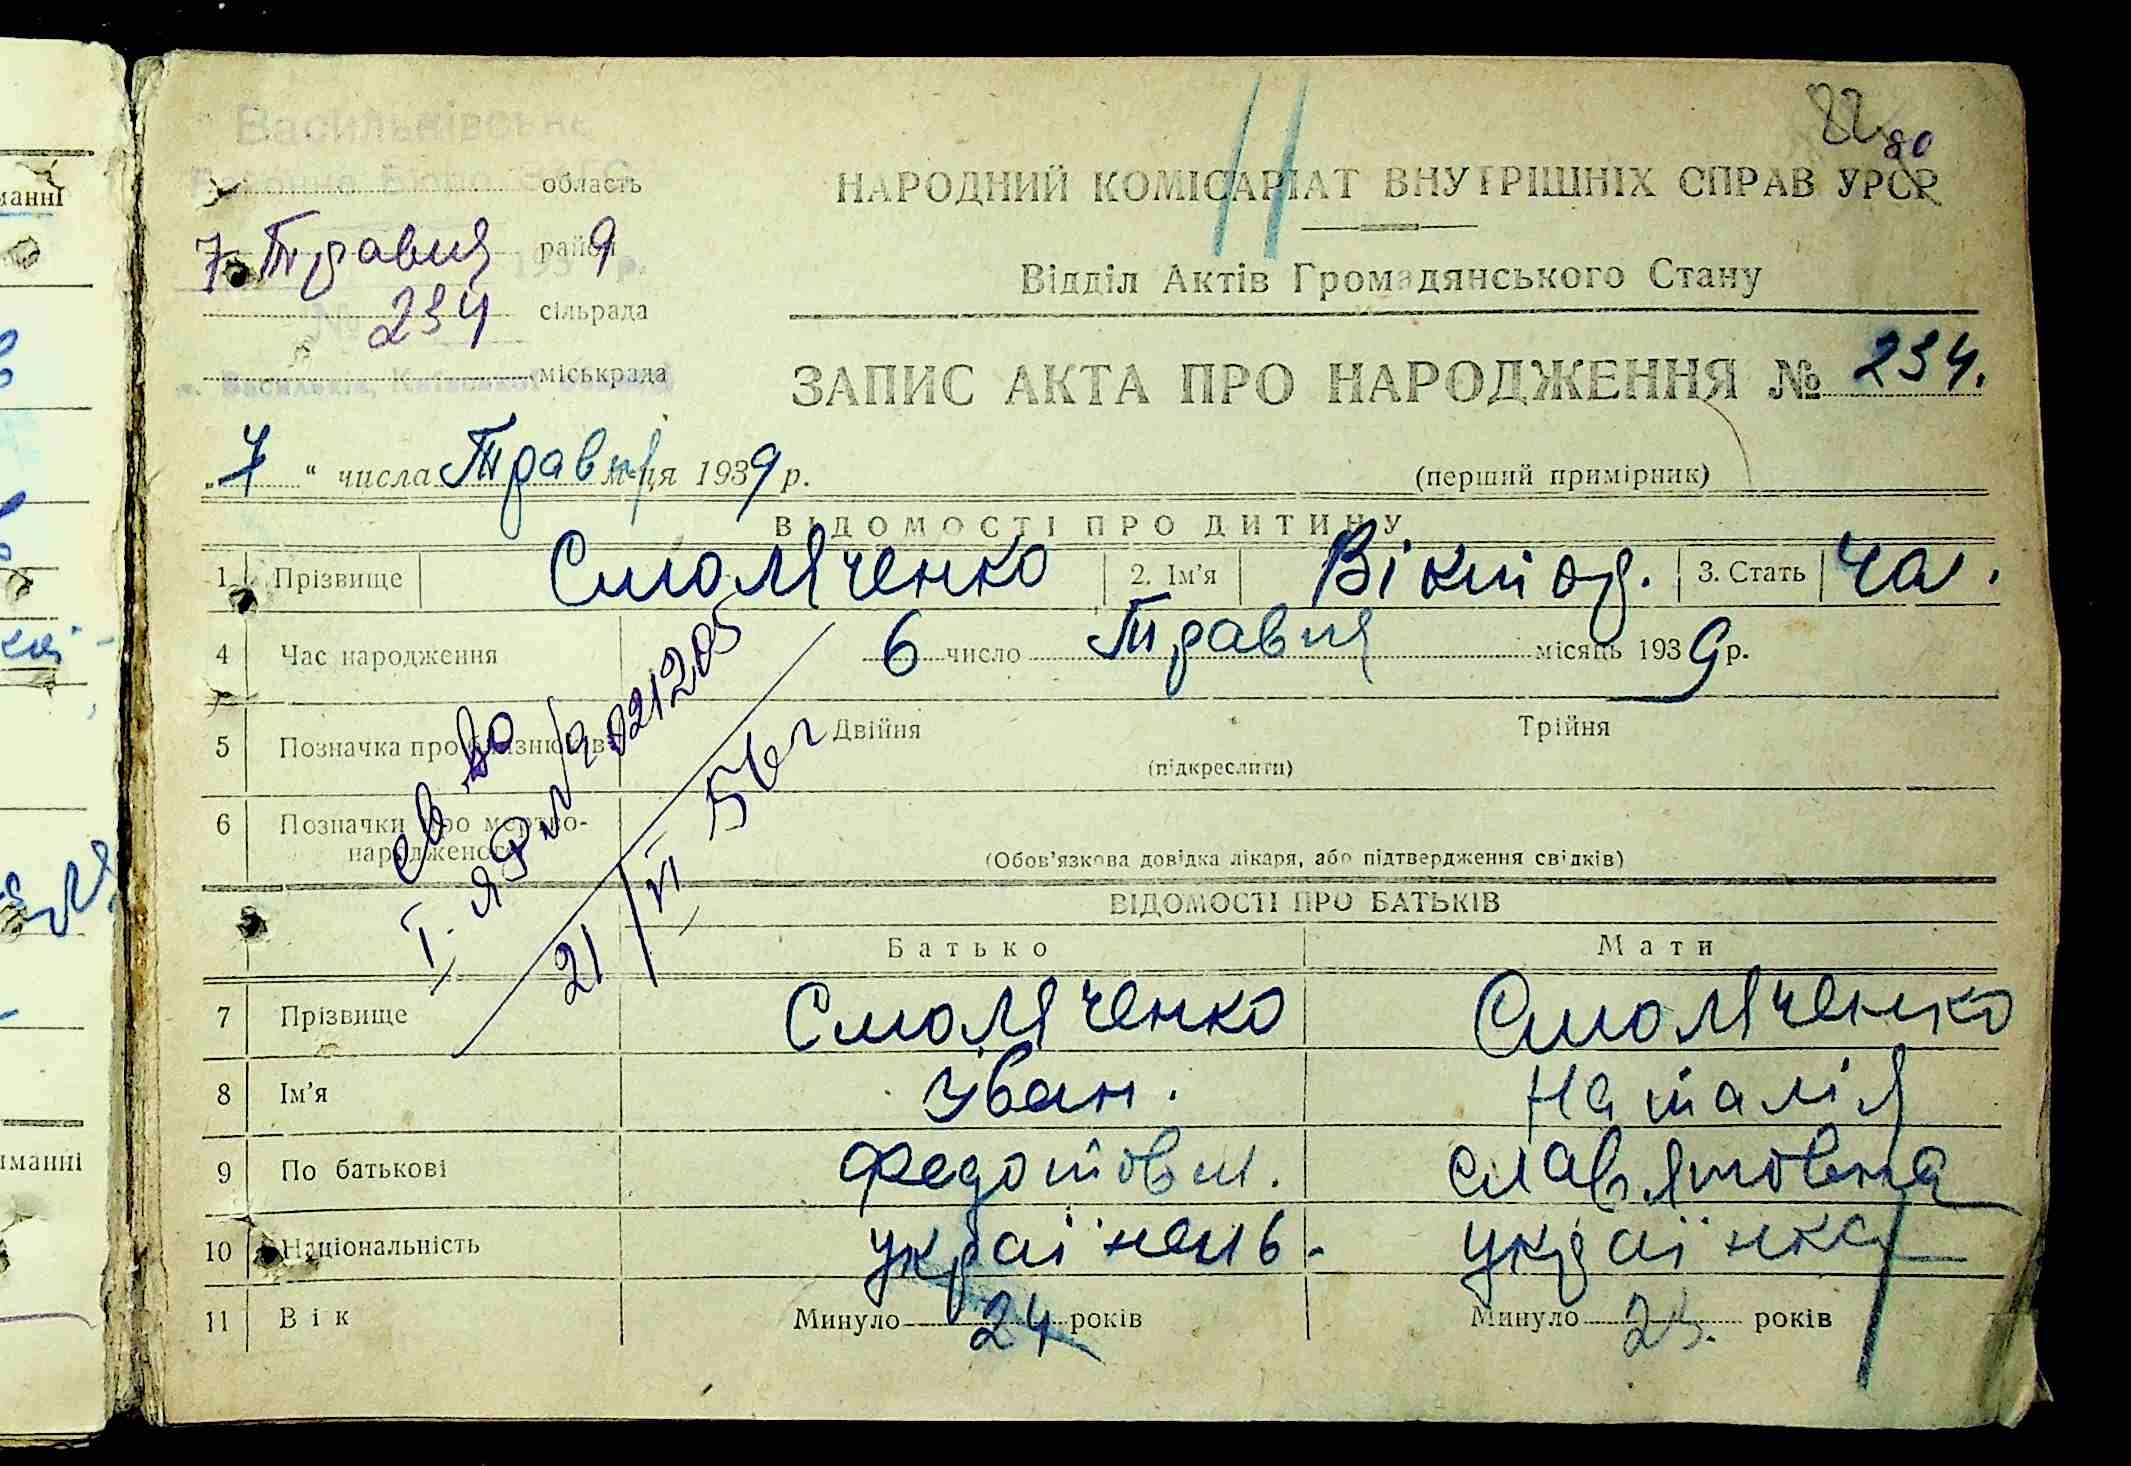 82 80
Васильківське
Районне Бюро ЗАГС
область
НАРОДНИЙ КОМІСАРІАТ ВНУТРІШНІХ СПРАВ УРСР
7 Травня район 9
193 р.
Відділ Актів Громадянського Стану
№ 234 сільрада
міськрада
м. Васильків, Київської
ЗАПИС АКТА ПРО НАРОДЖЕННЯ № 234.
„7“ числа Травня м-ця 1939 р.
(перший примірник)
ВІДОМОСТІ ПРО ДИТИНУ
1 Прізвище Смоляченко 2. Ім'я Віктор. 3. Стать чол.
4 Час народження 6 число Травня місяць 1939 р.
5 Позначка про близнюків Двійня Трійня
(підкреслити)
6 Позначки про мертво-
народженого
(Обов'язкова довідка лікаря, або підтвердження свідків)
св во
021205
21/VI 56 г
ВІДОМОСТІ ПРО БАТЬКІВ
Батько Мати
7 Прізвище Смоляченко Смоляченко
8 Ім'я Іван. Наталія
9 По батькові Федотович. Славятовна
10 Національність українець. українка
11 Вік Минуло 24 років Минуло 23. років
манні
иманні